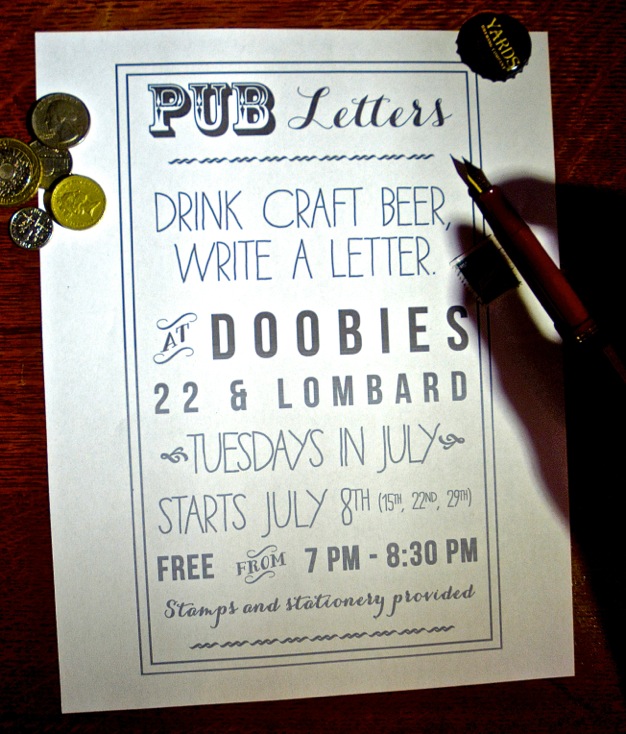 YARDS
PUB Letters
DRINK CRAFT BEER,
WRITE A LETTER.
AT DOOBIES
22 & LOMBARD
TUESDAYS IN JULY
STARTS JULY 8TH (15TH, 22ND, 29TH)
FREE FROM 7 PM - 8:30 PM
Stamps and stationery provided